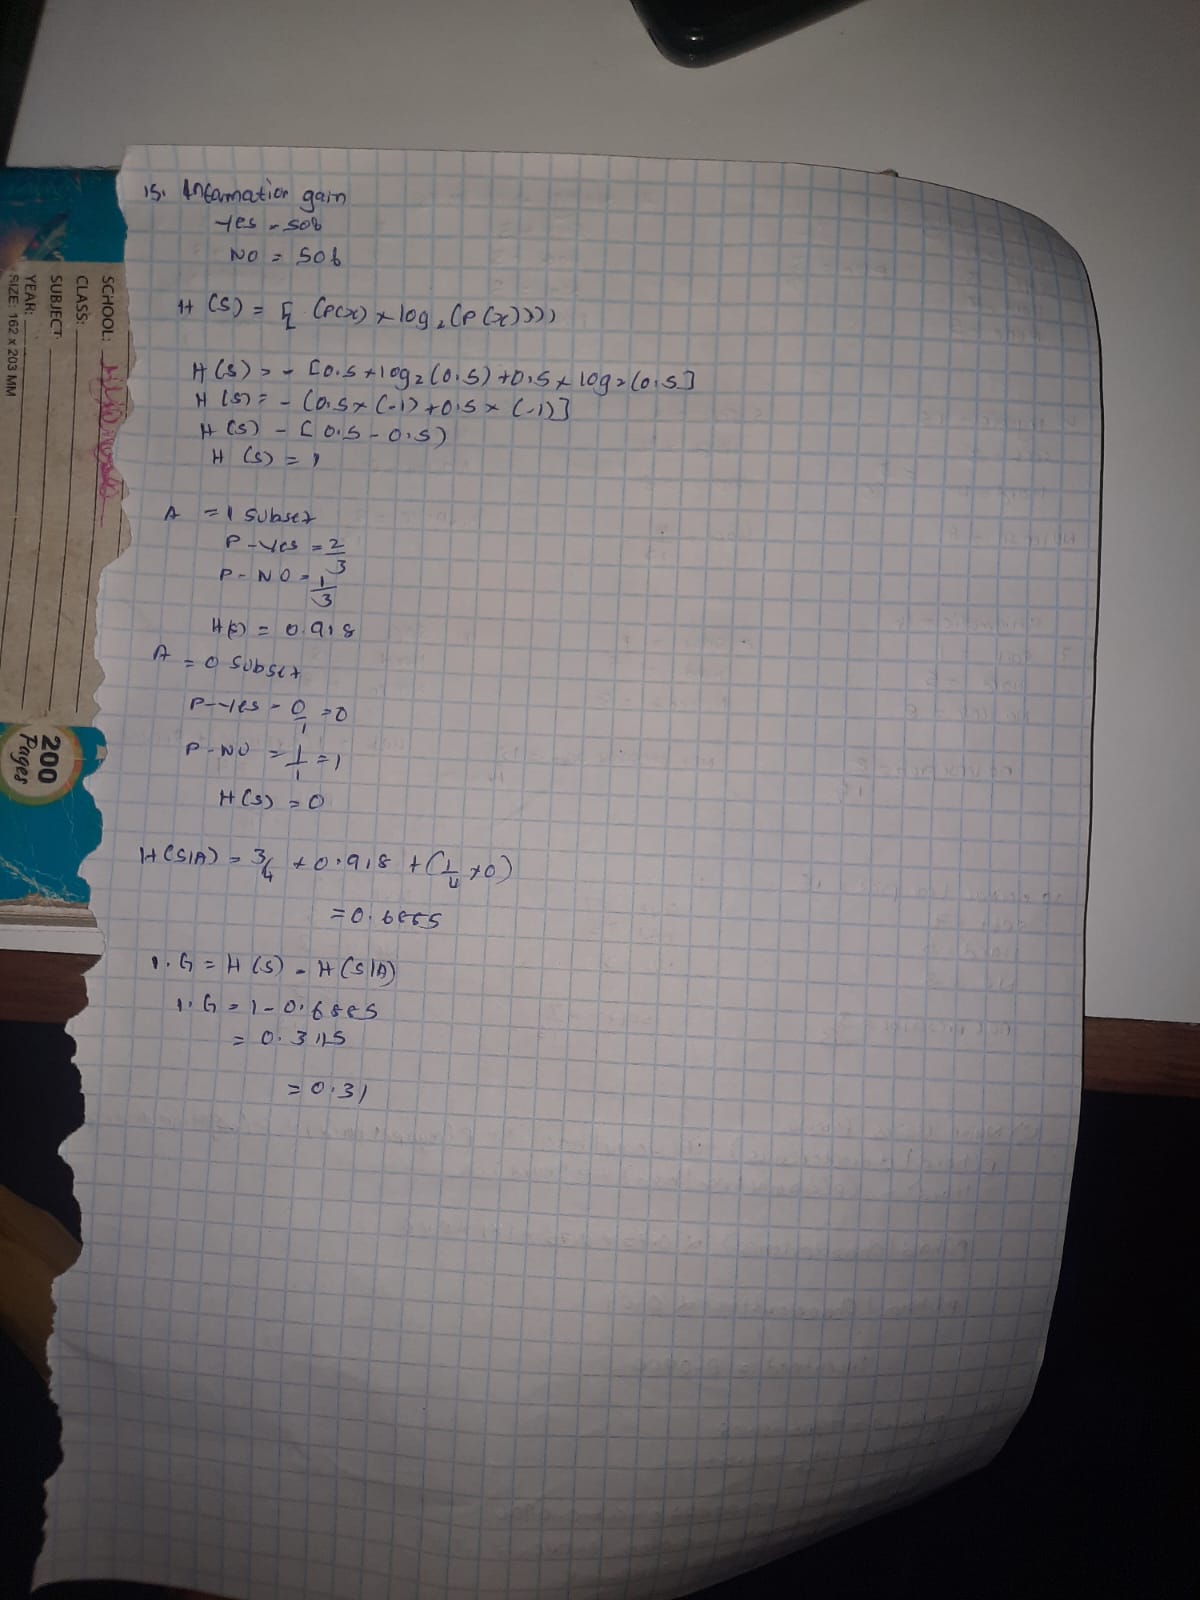 15. Information gain
Yes = 50%
NO = 50%
H (S) = Σ (P(x) × log₂ (P(x))))
H(S) = - [0.5 × log₂(0.5) + 0.5 × log₂(0.5]
H(S) = - (0.5 × (-1) + 0.5 × (-1)]
H(S) - [0.5 - 0.5)
H (S) = 1
A = 1 Subset
P - Yes = 2/3
P - NO = 1/3
H(S) = 0.918
A = 0 Subset
P - Yes = 0/1 = 0
P - NO = 1/1 = 1
H(S) = 0
H(S|A) = 3/4 × 0.918 + (1/4 × 0)
= 0.6885
I.G = H(S) - H(S|A)
I.G = 1 - 0.6885
= 0.3115
= 0.31
SCHOOL:
CLASS:
SUBJECT:
YEAR:
SIZE: 162 x 203 MM
200
Pages